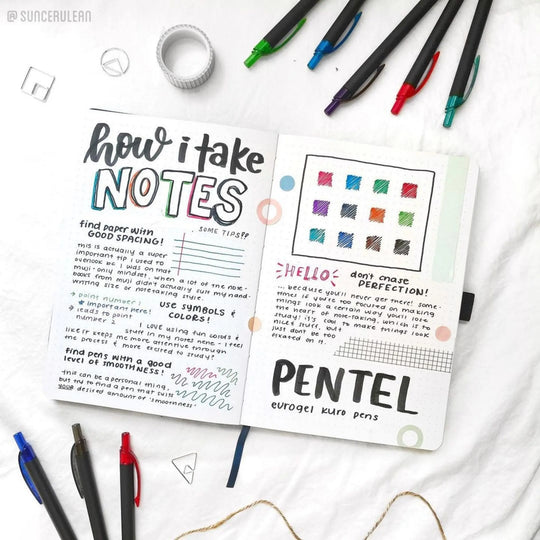 @ SUNCERULEAN
how i take
NOTES
SOME TIPS!?
find paper with
GOOD SPACING!
this is actually a super
important tip i used to
overlook bc i was on that
muji-only mindset, when a lot of the note-
books from muji didn't actually suit my hand-
writing size or notetaking style.
USE SYMBOLS &
COLORS!
→ point number 1
important pen!
↳ leads to point
I LOVE using fun colors &
stuff in my notes here - i feel
like it keeps me more attentive through
the process & more excited to study!
find pens with a good
level of smoothness!
this can be a personal thing,
but try to find a pen that suits
your desired amount of "smoothness"
HELLO
don't chase
PERFECTION!
... because you'll never get there! some-
times if you're too focused on making
things look a certain way you'll lose
the heart of note-taking, which is to
study! it's cool to make things look
nice & stuff, but
just don't be too
PENTEL
euergel kuro pens